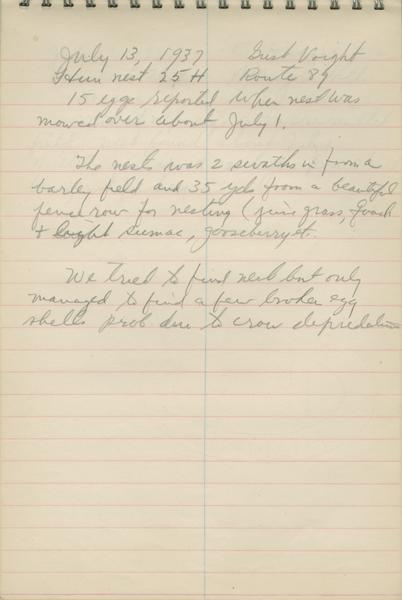 July 13, 1937 Gust Voight
Hun nest 25H Route 89
15 eggs reported when nest was
mowed over about July 1.
The nests was 2 swaths in from a
barley field and 35 yds from a beautiful
fence row for nesting (June grass, Quack
+ sumac, gooseberry etc.
We tried to find nest but only
managed to find a few broken egg
shells prob due to crow depredation